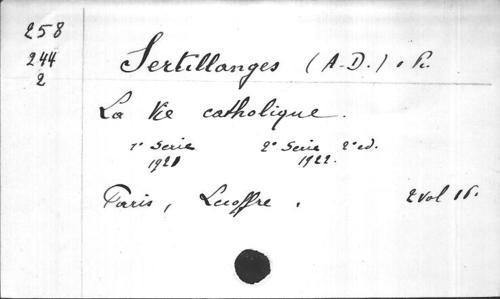 258
244
2
Sertillanges (A-D.)
La Vie catholique.
1e Serie 2e Serie 2e ed.
1921 1922.
Paris, Lecoffre. 2 vol 16.